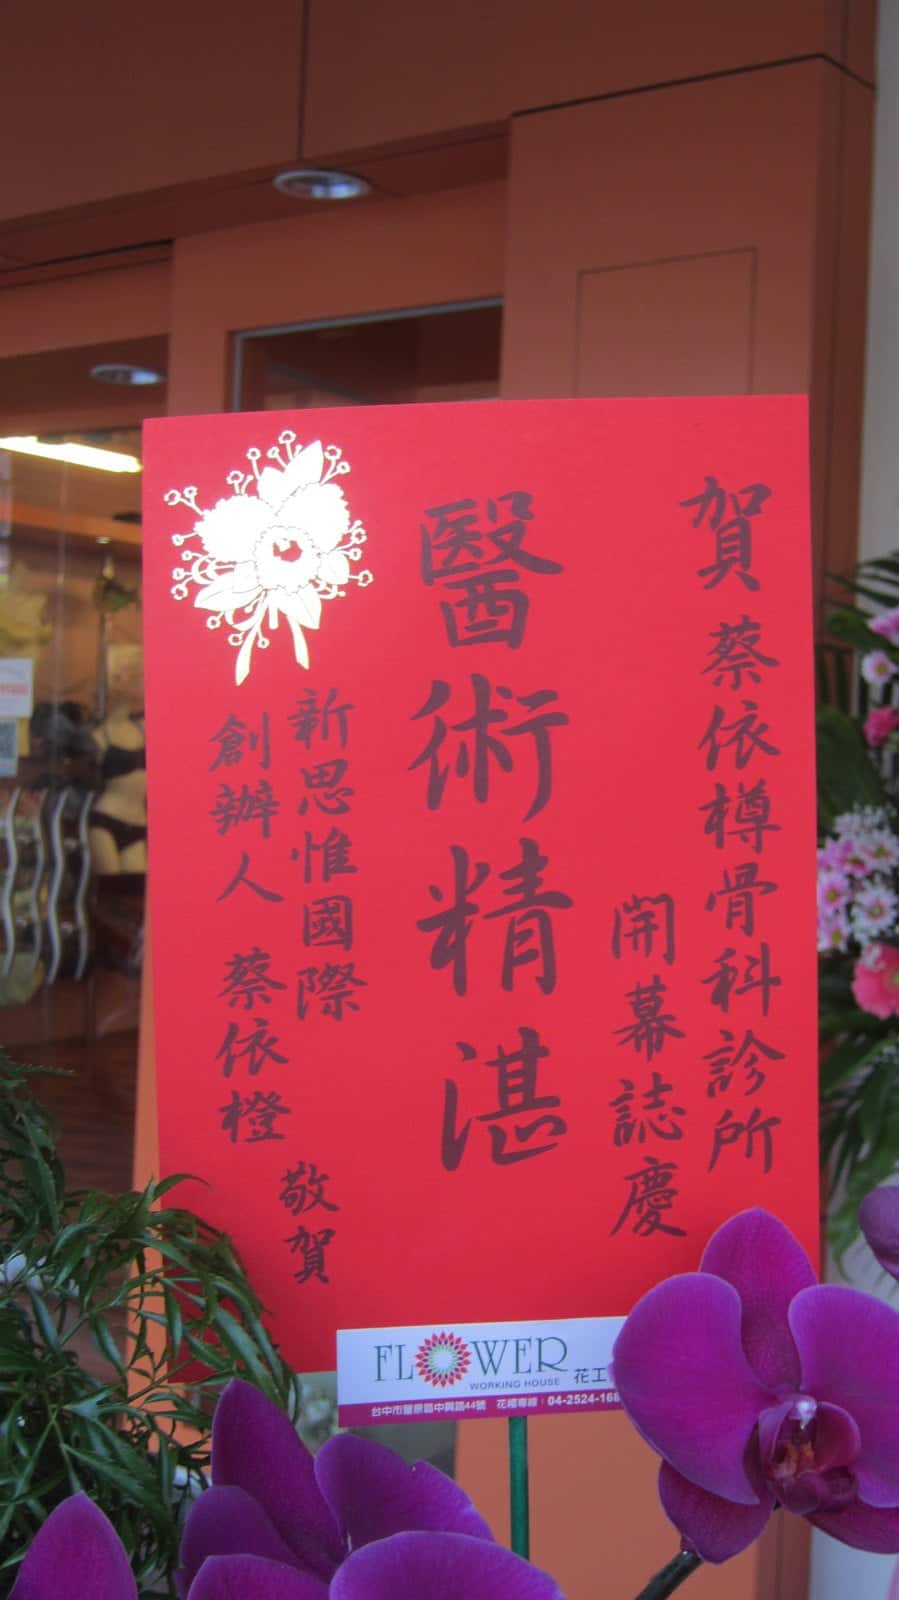 賀 蔡依樽骨科診所
開幕誌慶
醫術精湛
新思惟國際
創辦人 蔡依橙
敬賀
FLOWER
WORKING HOUSE 花工
台中市豐原區中興路44號 花禮專線：04-2524-168